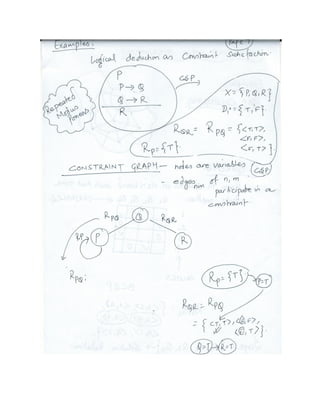 Examples:
Logical deduction as Constraint Satisfaction
P
P → Q
Q → R
R
Repeated
Modus
Ponens
CSP
X = {P, Q, R}
Di = {T, F}
RQR = RPQ = {<T,T>,
<F,F>,
<F,T>}
Rp = {T}
CONSTRAINT GRAPH — nodes are variables
CSP
edges n,m of n, m
participate in a
constraint
RPQ
Q
RQR
RP
P
R
RPQ:
Rp = {T}
P=T
RQR = RPQ
= {<T,T>, <F,F>,
<F,T>}.
Q=T → R=T